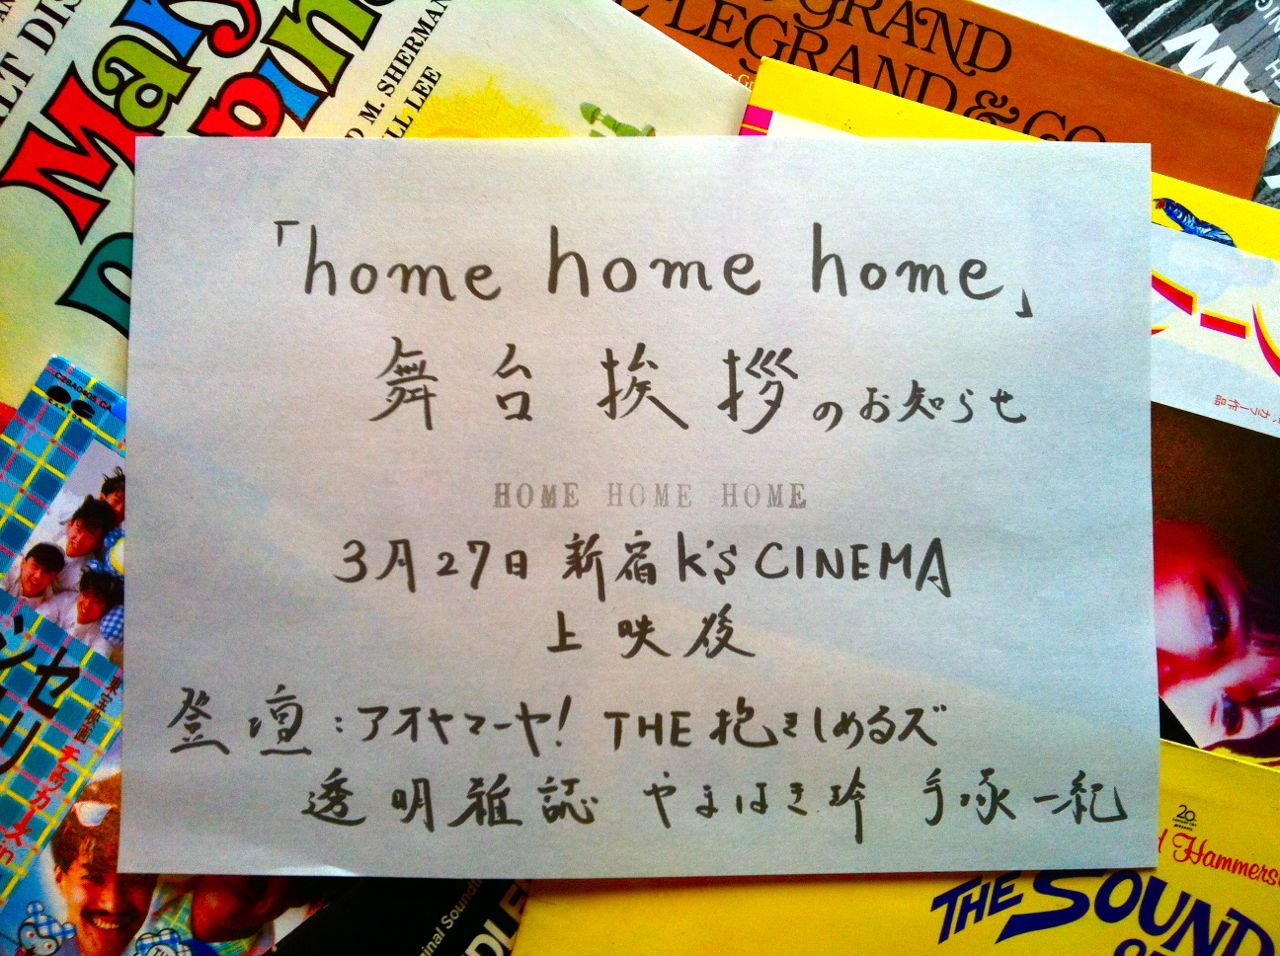 Mary
D M. SHERMAN
LL LEE
GRAND
LEGRAND & CO
「home home home」
舞台挨拶のお知らせ
HOME HOME HOME
3月27日 新宿 K's CINEMA
上映後
登壇:アオヤマーヤ! THE 抱きしめるズ
透明雑誌 やまはき玲 手塚一紀
C25A0405 CA
チェッカーズ in
inal Sound
20
Hammers
THE SOUND